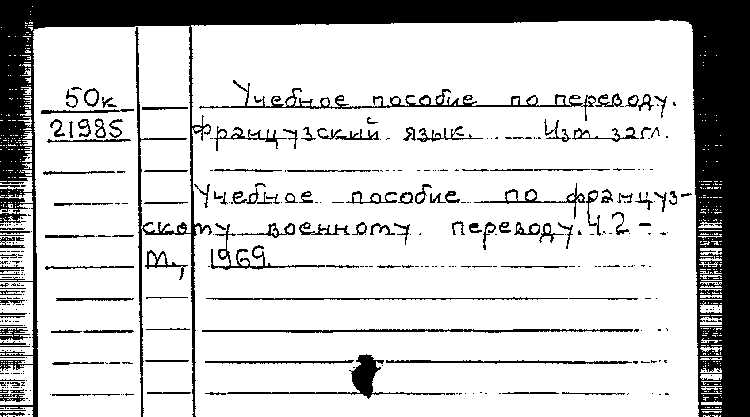 50к Учебное пособие по переводу.
21985 Французский язык. Изм. загл.
Учебное пособие по француз-
скому военному переводу. Ч. 2 -
М., 1969.